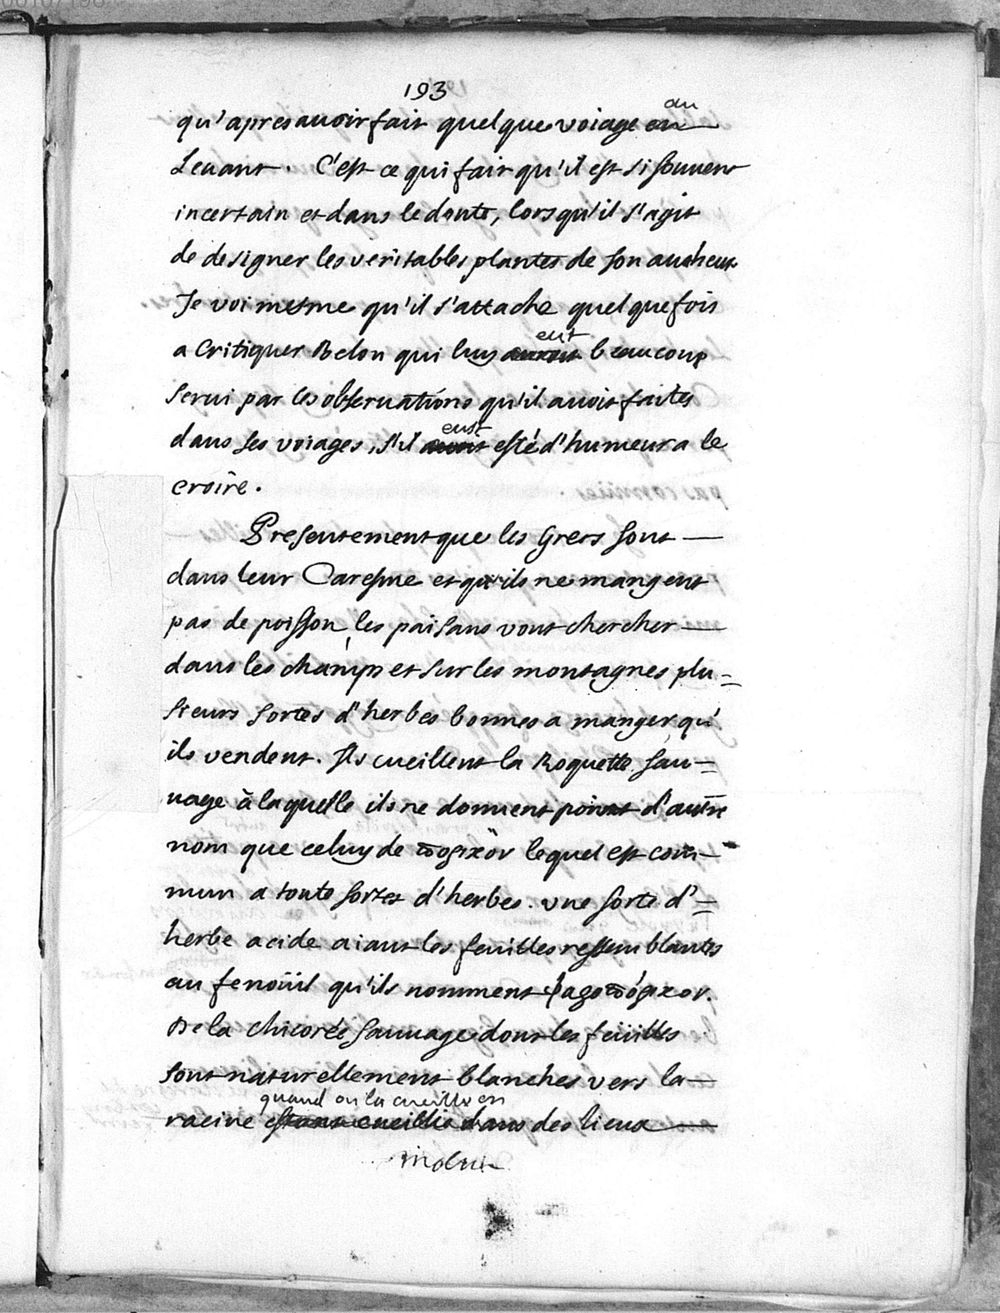 193
qu'apres avoir fait quelque voiage au
Levant. C'est ce qui fait qu'il est si souvent
incertain et dans le doute, lorsqu'il s'agit
de designer les veritables plantes de son autheur
Je voi mesme qu'il s'attache quelquefois
a Critiquer Belon qui luy eut beaucoup
servi par les observations qu'il avoit faites
dans ses voiages, s'il eust esté d'humeur a le
croire.
Presentement que les Grecs sont
dans leur Caresme et qu'ils ne mangent
pas de poisson, les païsans vont chercher
dans les champs et sur les montagnes plu=
sieurs sortes d'herbes bonnes a manger qu'
ils vendent. Ils cueillent la Roquette sau=
vage à laquelle ils ne donnent point d'autre
nom que celuy de ϖορικὸν lequel est com-
mun a toute sortes d'herbes. une sorte d'=
herbe acide aiant les feuilles ressemblantes
au fenoüil qu'ils nomment
De la chicorée sauvage dont les feüilles
sont naturellement blanches vers la
quand on la cueille en
racine estant cueillie dans des lieux